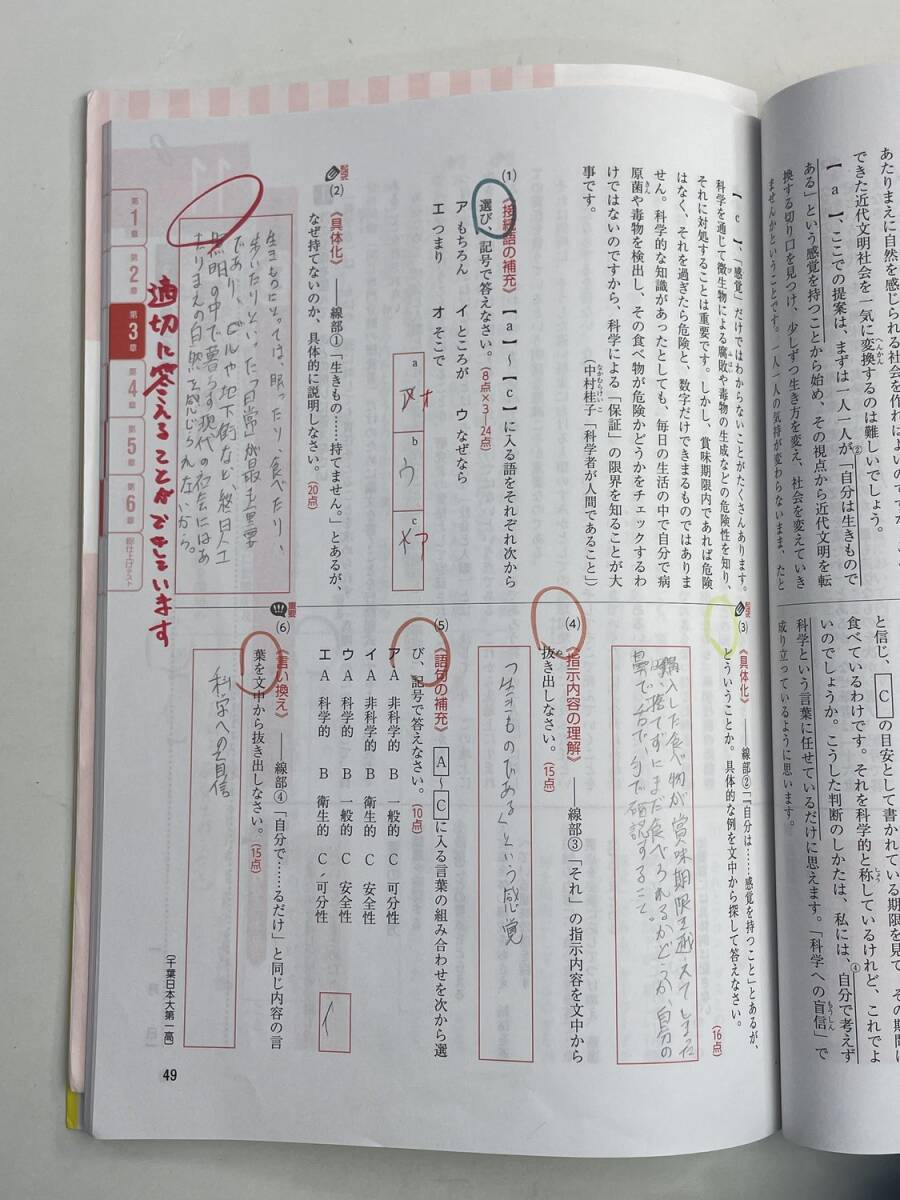 あたりまえに自然を感じられる社会を作ればよいのですが、
できた近代文明社会を一気に変換するのは難しいでしょう。
【 a 】、ここでの提案は、まずは一人一人が「自分は生きもので
ある」という感覚を持つことから始め、その視点から近代文明を転
換する切り口を見つけ、少しずつ生き方を変え、社会を変えていき
ませんかということです。一人一人の気持が変わらないまま、たと
【 c 】、「感覚」だけではわからないことがたくさんあります。
科学を通じて微生物による腐敗や毒物の生成などの危険性を知り、
それに対処することは重要です。しかし、賞味期限内であれば危険
はなく、それを過ぎたら危険と、数字だけできまるものではありま
せん。科学的な知識があったとしても、毎日の生活の中で自分で病
原菌や毒物を検出し、その食べ物が危険かどうかをチェックするわ
けではないのですから、科学による「保証」の限界を知ることが大
事です。
（中村桂子「科学者が人間であること」）
(1) 《接続語の補充》 【 a 】～【 c 】に入る語をそれぞれ次から
選び、記号で答えなさい。（8点×3―24点）
ア もちろん イ ところが ウ なぜなら
エ つまり オ そこで
a オ
b ウ
c ア
記述 (2) 《具体化》 ――線部①「生きもの……持てません。」とあるが、
なぜ持てないのか、具体的に説明しなさい。（20点）
生きものにとっては、眠ったり、食べたり、
歩いたりといった「日常」が最も重要
であり、ビルや地下街など、終日人工
照明の中で暮らす現代の社会にはあ
たりまえの自然を感じられないから。
適切に答えることができています
第1章
第2章
第3章
第4章
第5章
第6章
総仕上げテスト
と信じ、C の目安として書かれている期限を見て、その期間
食べているわけです。それを科学的と称しているけれど、これでよ
いのでしょうか。こうした判断のしかたは、私には、④自分で考えず
科学という言葉に任せているだけに思えます。「科学への盲信」で
成り立っているように思います。
記述 (3) 《具体化》 ――線部②「『自分は……感覚を持つこと」とあるが、
どういうことか。具体的な例を文中から探して答えなさい。
（16点）
購入した食べ物が賞味期限を越えてしまった
時、捨てずにまだ食べられるかどうか、自分の
鼻で、舌で、手で確認すること。
(4) 《指示内容の理解》 ――線部③「それ」の指示内容を文中から
抜き出しなさい。（15点）
「生きものである」という感覚
(5) 《語句の補充》 A～Cに入る言葉の組み合わせを次から選
び、記号で答えなさい。（10点）
ア A 非科学的 B 一般的 C 可分性
イ A 非科学的 B 衛生的 C 安全性
ウ A 科学的 B 一般的 C 安全性
エ A 科学的 B 衛生的 C 可分性
イ
重要 (6) 《言い換え》 ――線部④「自分で……るだけ」と同じ内容の言
葉を文中から抜き出しなさい。（15点）
科学への盲信
（千葉日本大第一高）
49